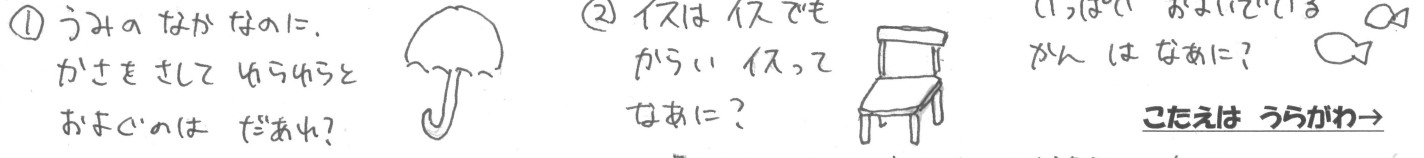 ① うみの なか なのに、
かさを さして ゆらゆらと
およぐのは だあれ?
② イスは イスでも
からい イスって
なあに?
いっぱい およいでいる
かん は なあに?
こたえは うらがわ→